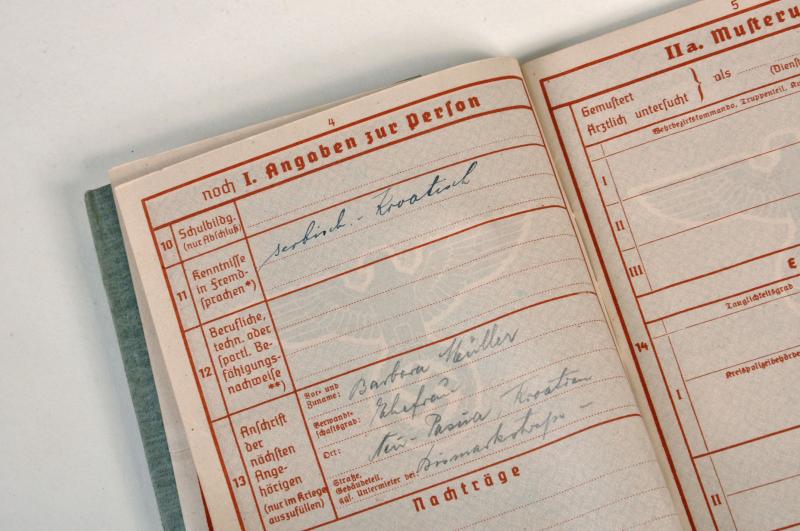 4
noch I. Angaben zur Person
10 Schulbildg.
(nur Abschluß)
11 Kenntnisse
in Fremd-
sprachen*)
serbisch. - Kroatisch
12 Berufliche,
techn. oder
sportl. Be-
fähigungs-
nachweise
**)
13 Anschrift
der
nächsten
Ange-
hörigen
(nur im Kriege
auszufüllen)
Vor- und
Zuname: Barbara Müller
Verwandt-
schaftsgrad: Ehefrau
Ort: Neu-Pasua, Kroatien
Straße,
Gebäudeteil,
ggf. Untermieter bei: Bismarckstraße -
Nachträge
5
II a. Musteru
Gemustert
Ärztlich untersucht } als
(Dienst
Wehrbezirkskommando, Truppenteil,
I
II
III
E
Tauglichkeitsgrad
14
Kreispolizeibehörde
I
II